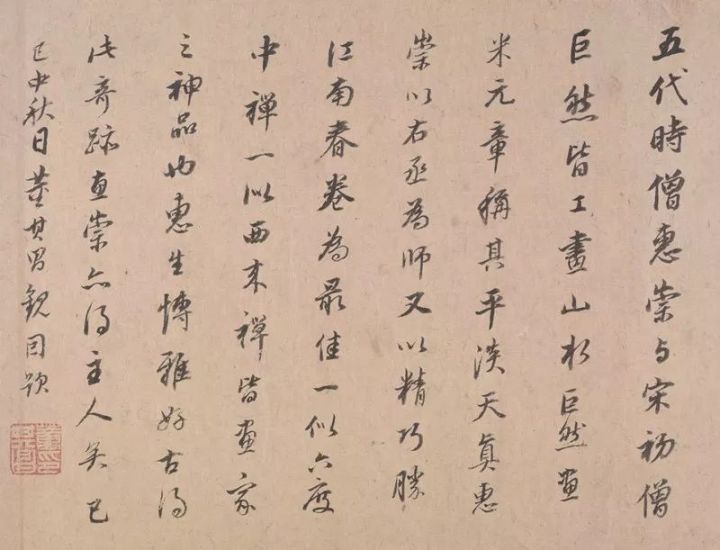 五代時僧惠崇与宋初僧
巨然皆工畫山水巨然画
米元章稱其平淡天真惠
崇以右丞為師又以精巧勝
江南春卷為最佳一似六度
中禪一似西来禪皆画家
之神品也惠生愽雅好古得
此奇跡惠崇亦得主人矣己
巳中秋日董其昌觀因題